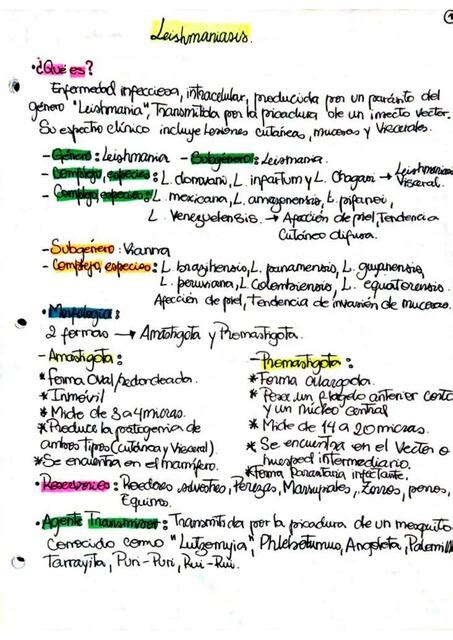 1
Leishmaniasis.
•¿Qué es?
Enfermedad infecciosa, intracelular, producida por un parásito del
género "Leishmania", Transmitida por la picadura de un insecto vector.
Su espectro clínico incluye Lesiones cutáneas, mucosas y Viscerales.
- Género: Leishmania - Subgénero: Leismania.
- Complejo, especies: L. donovani, L. infartum y L. Chagasi → Leishmaniasis
Visceral.
- Complejo, especies: L. mexicana, L. amazonensis, L. pifanoi,
L. Venezuelensis → Afección de piel, Tendencia
Cutáneo difusa.
- Subgénero: Vianna
- Complejo, especies: L. brasiliensis, L. panamensis, L. guyanensis,
L. peruviana, L. Colombiensis, L. equatorensis.
Afección de piel, Tendencia de invasión de mucosas.
• Morfología:
2 formas → Amastigota y Promastigota.
- Amastigota:
* Forma Oval/redondeada.
* Inmóvil
* Mide de 3 a 4 micras.
* Produce la patogenia de
ambos tipos (Cutánea y Visceral).
* Se encuentra en el mamífero.
- Promastigota:
* Forma alargada.
* Posee un flagelo anterior corto
y un núcleo central
* Mide de 14 a 20 micras.
* Se encuentra en el Vector o
huesped intermediario.
* Forma parasitaria infectante.
• Reservorios: Roedores silvestres, Perezas, Marsupiales, Zorros, perros,
Equinos.
• Agente Transmisor: Transmitida por la picadura de un mosquito
Conocido como "Lutzomyia", Phlebotumus, Angoleta, Palomilla
Tarrayita, Puri-Puri, Rui-Rui.